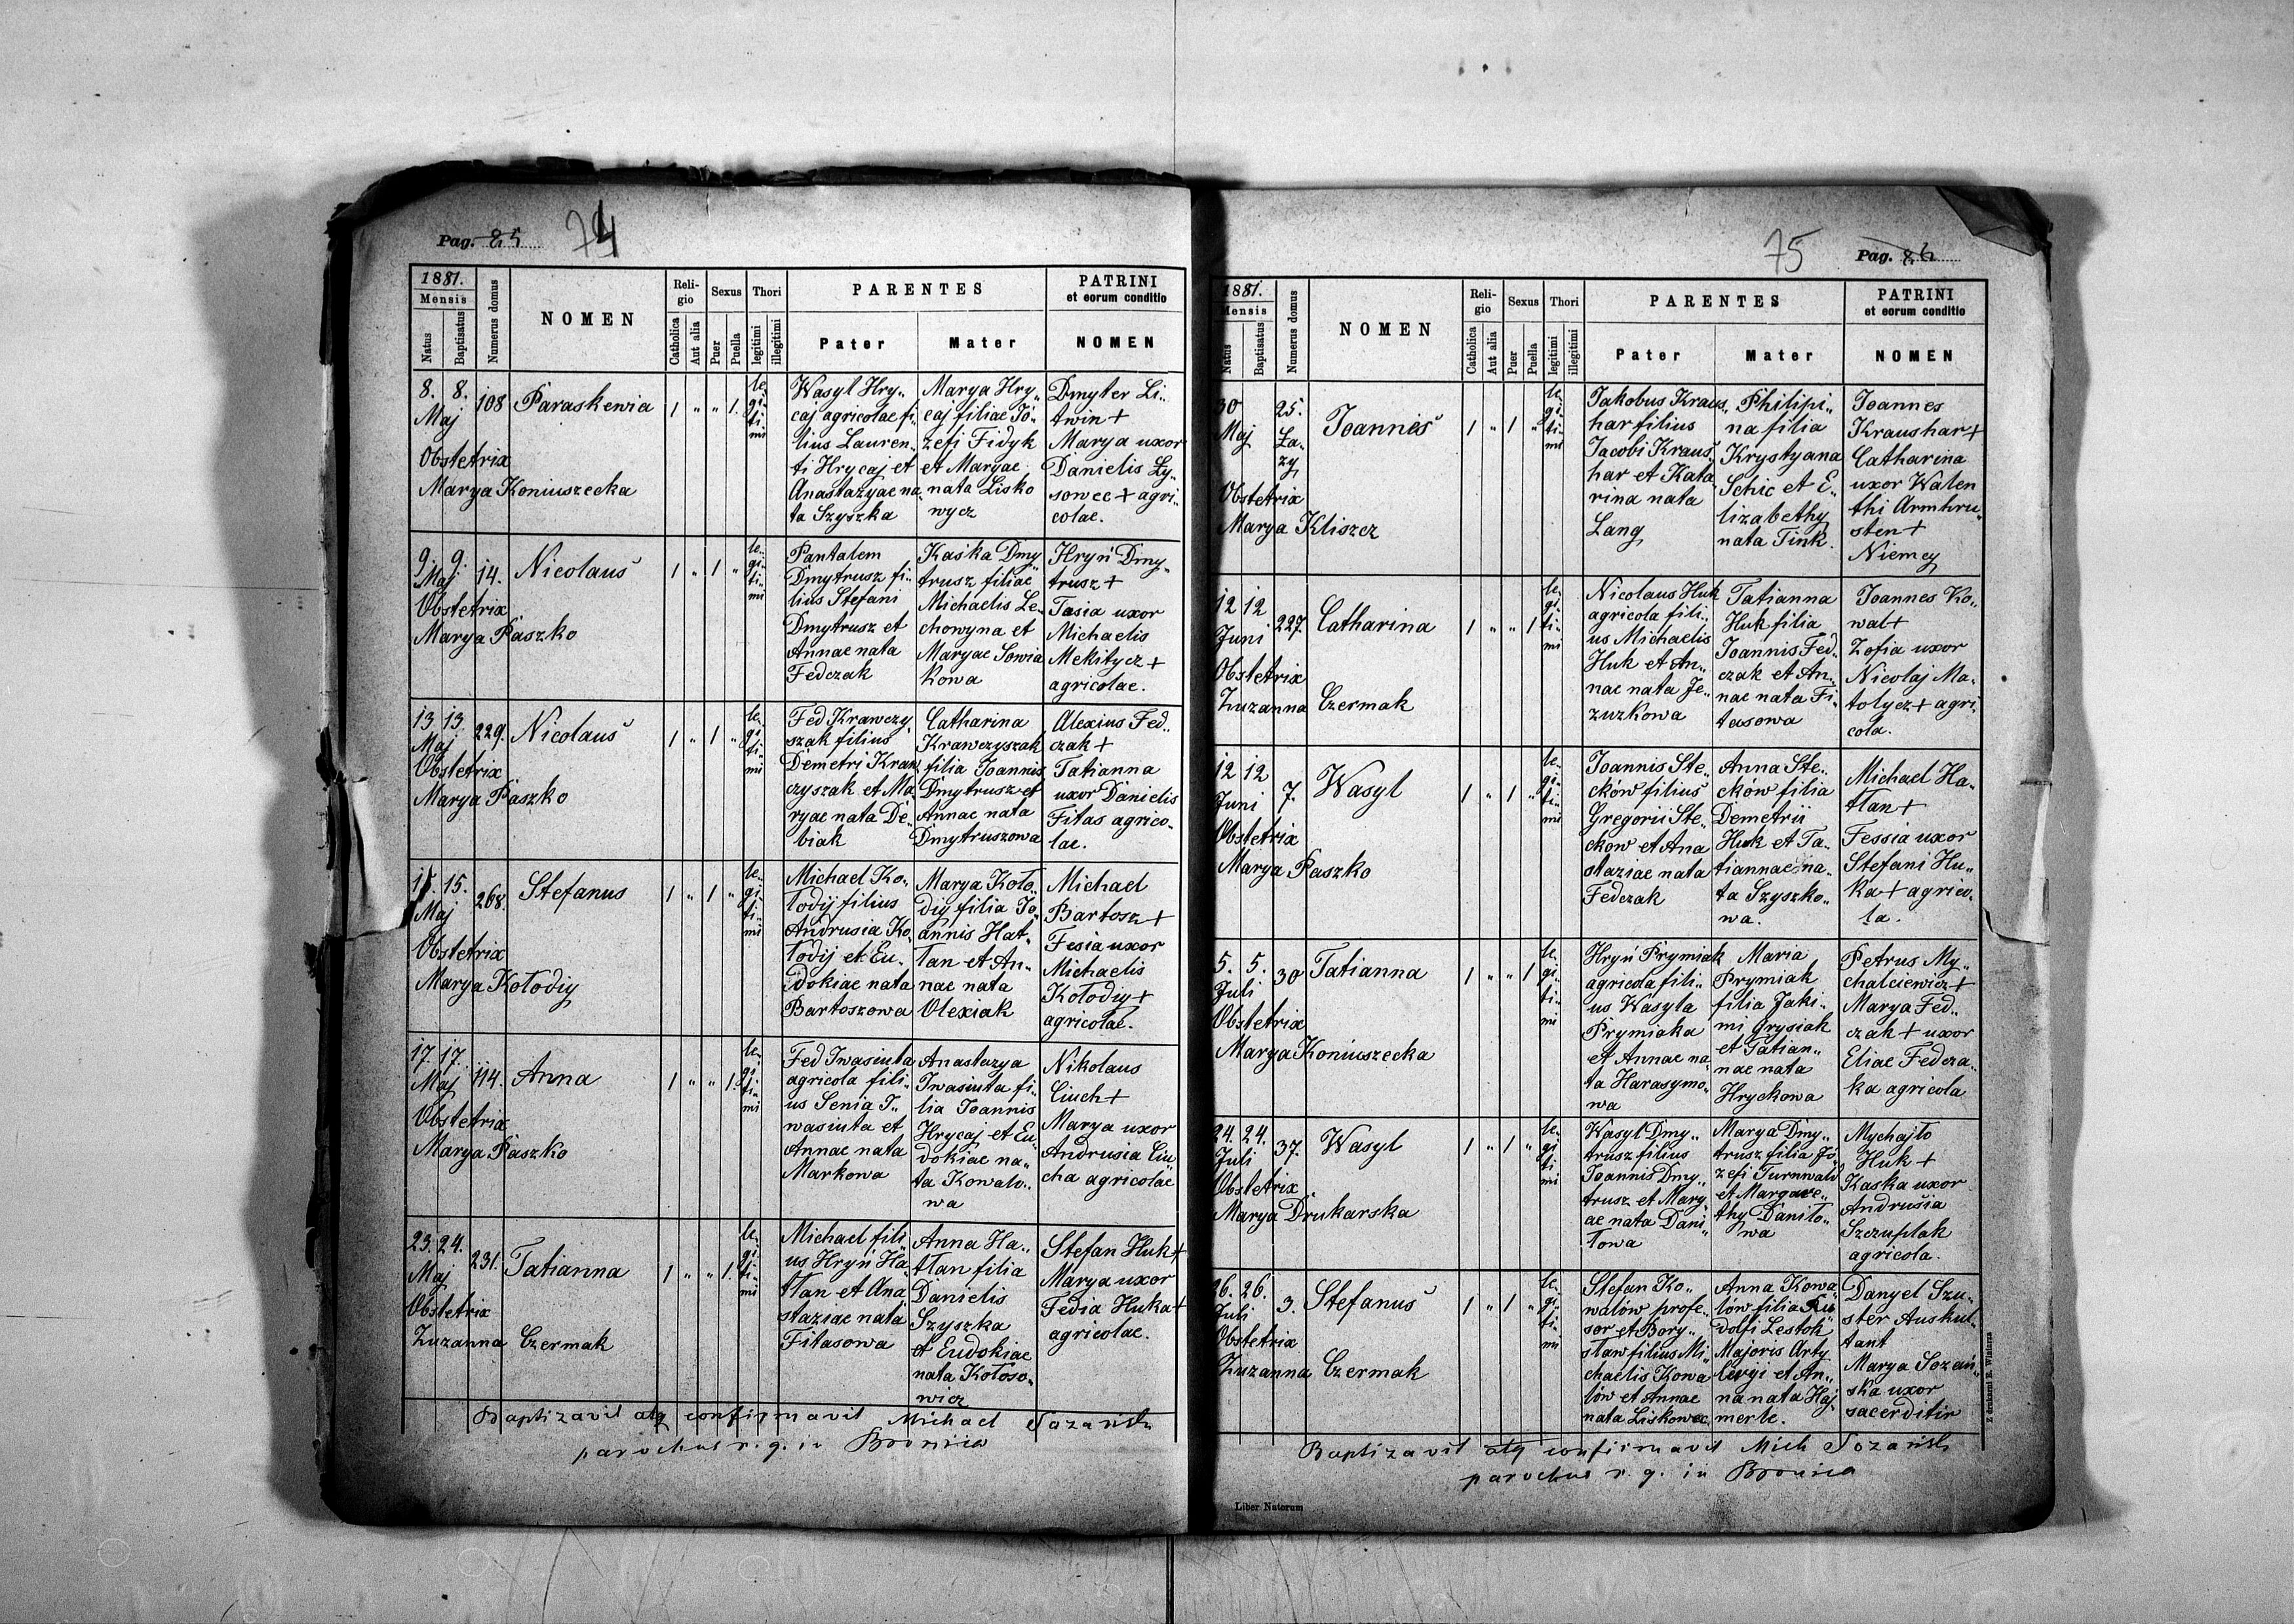 Pag. 85 74
1881.
Mensis
Natus
Baptisatus
Numerus domus
NOMEN
Reli-
gio
Catholica
Aut alia
Sexus
Puer
Puella
Thori
legitimi
illegitimi
PARENTES
Pater
Mater
PATRINI
et eorum conditio
NOMEN
8. 8. 108 Paraskewia 1 " " 1.
Maj
Obstetrix
Marya Koniuszecka
le-
gi-
ti-
mi
Wasyl Hry-
caj agricolae fi-
lius Lauren-
ti Hrycaj et
Anastazyae na-
ta Szyszka
Marya Hry-
caj filiae Jo-
zefi Fidyk
et Maryae
nata Lisko
wycz
Dmyter Li-
twin +
Marya uxor
Danielis Ły-
sowec + agri-
colae.
9. 9. 14. Nicolaus 1 " 1 "
Maj
Obstetrix
Marya Paszko
le-
gi-
ti-
mi
Pantalem
Dmytrusz fi-
lius Stefani
Dmytrusz et
Annae nata
Fedczak
Kaśka Dmy-
trusz filiae
Michaelis Le-
chowyna et
Maryae Sowia
kowa
Hryń Dmy-
trusz +
Tasia uxor
Michaelis
Mekitycz +
agricolae.
13 13. 229. Nicolaus 1 " 1 "
Maj
Obstetrix
Marya Paszko
le-
gi-
ti-
mi
Fed Krawczy
szak filius
Demetri Kraw
czyszak et Ma-
ryae nata De-
biak
Catharina
Krawczyszak
filia Joannis
Dmytrusz et
Annae nata
Dmytruszowa
Alexius Fed-
czak +
Tatianna
uxor Danielis
Fitas agrico-
lae.
15. 15. 268. Stefanus 1 " 1 "
Maj
Obstetrix
Marya Kołodiy
le-
gi-
ti-
mi
Michael Ko-
łodij filius
Andrusia Ko-
łodij et Eu-
dokiae nata
Bartoszowa
Marya Koło
diy filia Jo-
annis Hat-
łan et An-
nae nata
Olexiak
Michael
Bartosz +
Fesia uxor
Michaelis
Kołodiy +
agricolae.
17. 17. 114. Anna 1 " " 1.
Maj
Obstetrix
Marya Paszko
le-
gi-
ti-
mi
Fed Iwasiuta
agricola fili-
us Senia I-
wasiuta et
Annae nata
Markowa
Anastazya
Iwasiuta fi-
lia Joannis
Hrycaj et Eu
dokiae na-
ta Kowalo-
wa
Nikolaus
Ciuch +
Marya uxor
Andrusia Ciu
cha agricolae
23. 24. 231. Tatianna 1 " " 1.
Maj
Obstetrix
Zuzanna Czermak
le-
gi-
ti-
mi
Michael fili-
us Hryń Ha
tłan et Ana
staziae nata
Fitasowa
Anna Ha-
tłan filia
Danielis
Szyszka
et Eudokiae
nata Kołoso-
wicz
Stefan Huk +
Marya uxor
Fedia Huka +
agricolae.
Baptizavit atq confirmavit Michael Sozański
parochus r. g. in Bronica
75 Pag. 86
1881.
Mensis
Natus
Baptisatus
Numerus domus
NOMEN
Reli-
gio
Catholica
Aut alia
Sexus
Puer
Puella
Thori
legitimi
illegitimi
PARENTES
Pater
Mater
PATRINI
et eorum conditio
NOMEN
30 25. Joannes 1 " 1 "
Maj Ła-
zy
Obstetrix
Marya Kliszcz
le-
gi-
ti-
mi
Jakobus Kraus-
har filius
Jacobi Kraus-
har et Kata
rina nata
Lang
Philipi-
na filia
Krystyana
Schic et E-
lizabethy
nata Fink.
Joannes
Kraushar +
Catharina
uxor Walen
thi Armhru-
sten +
Niemcy
12 12 227. Catharina 1 " " 1
Juni
Obstetrix
Zuzanna Czermak
le-
gi-
ti-
mi
Nicolaus Huk
agricola fili-
us Michaelis
Huk et An-
nae nata Je-
zuzkowa
Tatianna
Huk filia
Joannis Fed-
czak et An-
nae nata Fi
tasowa
Joannes Ko-
wal +
Zofia uxor
Nicolaj Ma-
tolycz + agri
cola.
12 12 7. Wasyl 1 " 1 "
Juni
Obstetrix
Marya Paszko
le-
gi-
ti-
mi
Joannis Ste-
ćków filius
Gregorii Ste-
ćków et Ana
staziae nata
Fedczak
Anna Ste-
ćków filia
Demetrii
Huk et Ta-
tiannae na-
ta Szyszko-
wa.
Michael Ha-
tłan +
Fessia uxor
Stefani Hu-
ka + agrico-
la.
5. 5. 30 Tatianna 1 " " 1
Juli
Obstetrix
Marya Koniuszecka
le-
gi-
ti-
mi
Hryń Prymiak
agricola fili-
us Wasyla
Prymiaka
et Annae na
ta Harasymo-
wa
Maria
Prymiak
filia Jaki-
mi Grysiak
et Tatian-
nae nata
Hryckowa
Petrus My-
chalciewicz +
Marya Fed-
czak + uxor
Eliae Fedcza-
ka agricola
24. 24. 37. Wasyl 1 " 1 "
Juli
Obstetrix
Marya Drukarska
le-
gi-
ti-
mi
Wasyl Dmy-
trusz filius
Joannis Dmy-
trusz et Mary
ae nata Dani
łowa
Marya Dmy-
trusz filia Jo-
zefi Turnwald
et Margare-
thy Daniło-
wa
Mychajło
Huk +
Kaska uxor
Andrusia
Szczuplak
agricola.
26. 26. 3. Stefanus 1 " 1 "
Juli
Obstetrix
Zuzanna Czermak
le-
gi-
ti-
mi
Stefan Ko-
walów profe-
sor et Bory-
sław filius Mi-
chaelis Kowa
lów et Annae
nata Liskowec
Anna Kowa
lów filia Ru
dolfi Lestok
Majoris Arty
leryi et An-
na nata Haj
merle.
Danyel Szu-
ster Auskul-
tant
Marya Sozań-
ska uxor
sacerditir
Baptizavit atq confirmavit Mich Sozański
parochus r. g. in Bronica
Liber Natorum
Z drukarni E. Winiarza